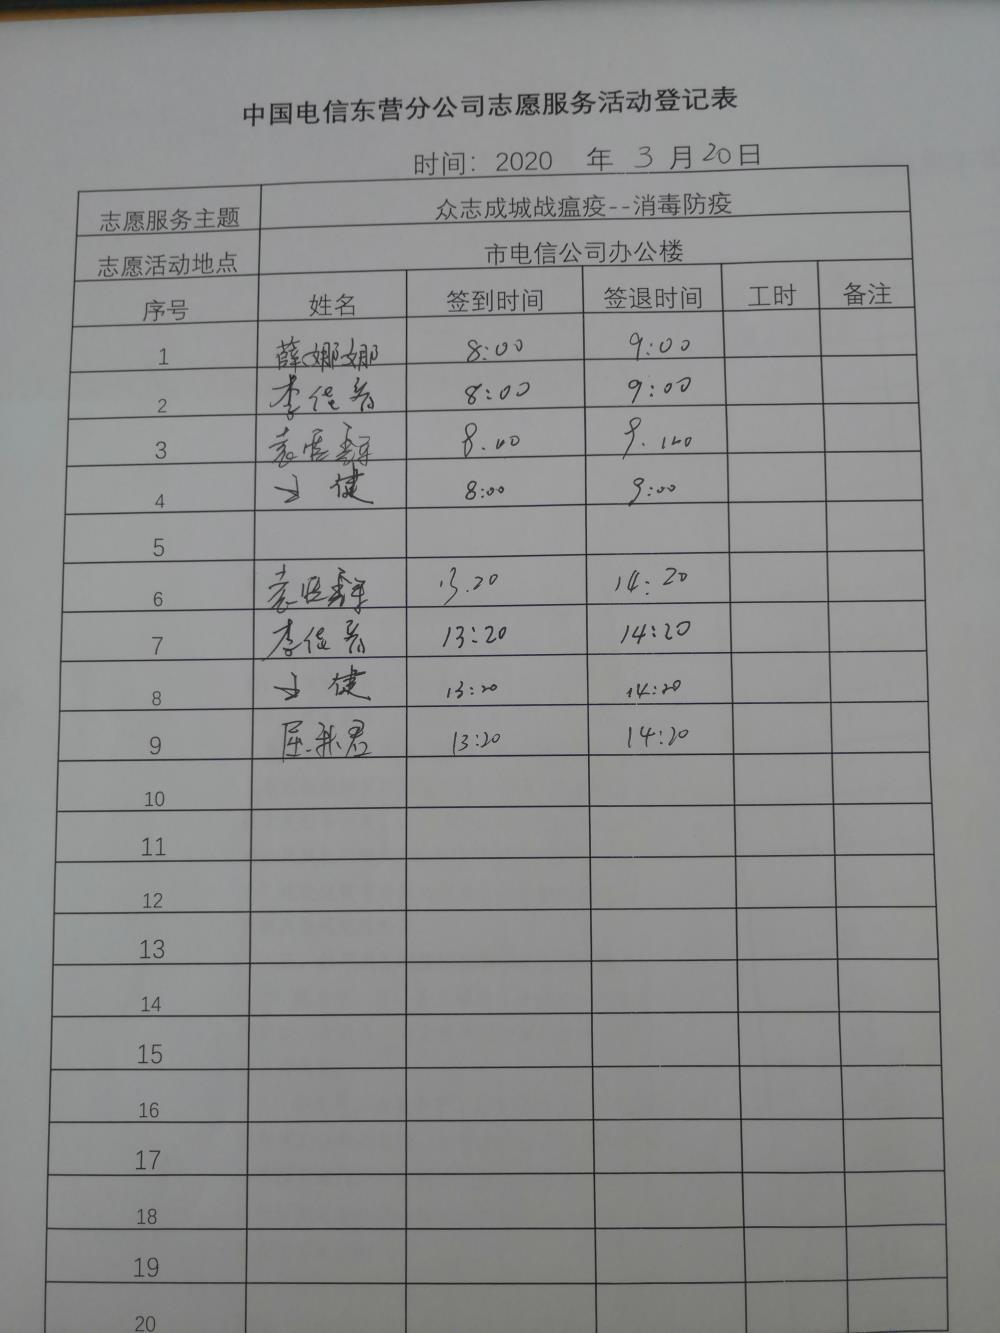 中国电信东营分公司志愿服务活动登记表
时间：2020 年 3 月 20 日
志愿服务主题 众志成城战瘟疫--消毒防疫
志愿活动地点 市电信公司办公楼
序号 姓名 签到时间 签退时间 工时 备注
1 薛娜娜 8:00 9:00
2 李 8:00 9:00
3 袁 8.00 9.00
4 王健 8:00 9:00
5
6 袁 13.20 14:20
7 李 13:20 14:20
8 王健 13:20 14:20
9 屈 君 13:20 14:20
10
11
12
13
14
15
16
17
18
19
20